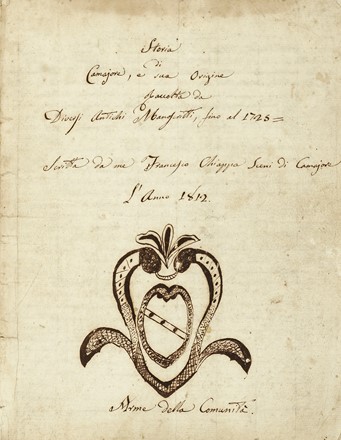 Storia
di
Camajore, e sua Origine
Racolta da
Diversi Antichi Manuscritti, fino al 1723 =
Scritta da me Francesco Chiappa Sceni di Camajore
L'Anno 1812.
Arme della Comunità.